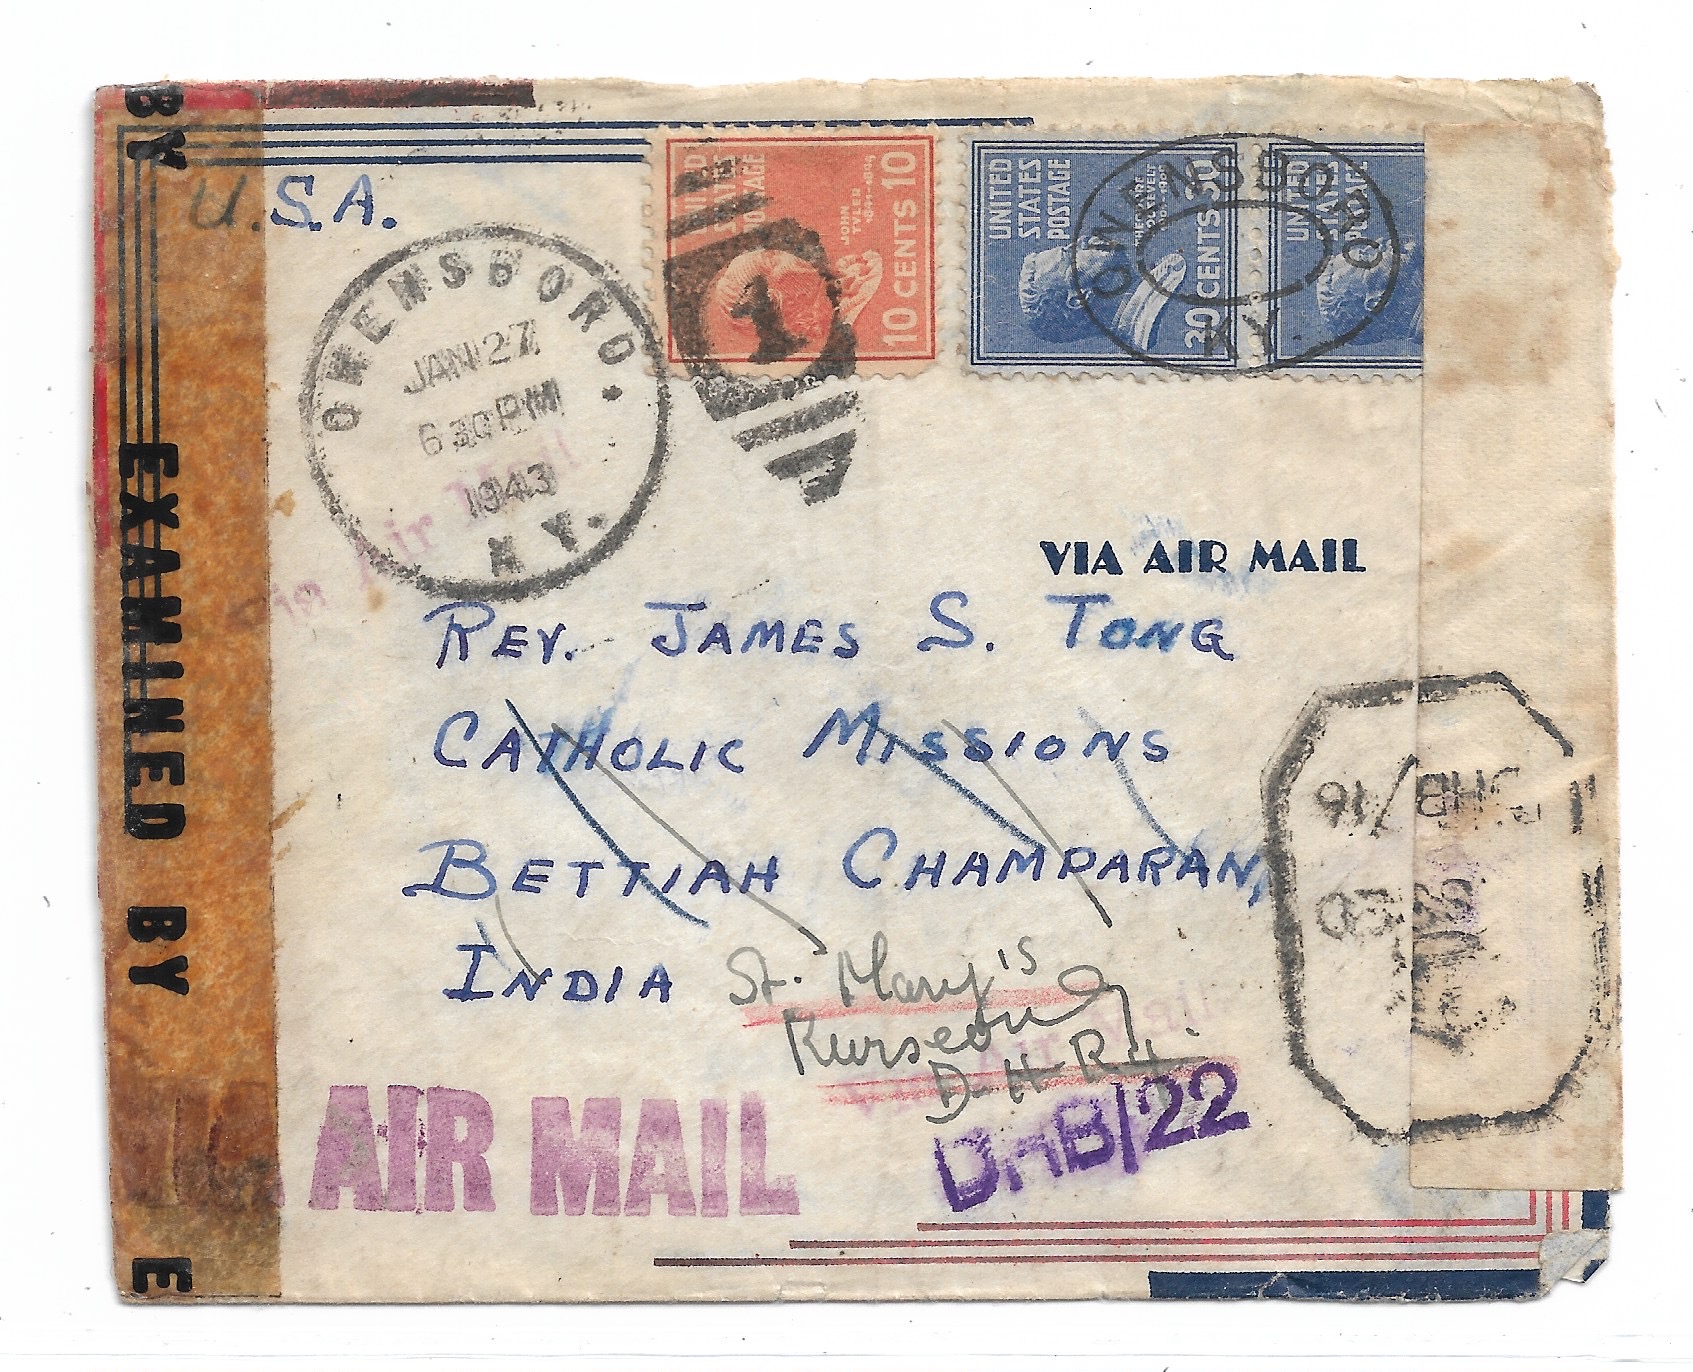 BY
EXAMINED BY
E
U.S.A.
OWENSBORO.
JAN 27
6 30 PM
1943
KY.
Via Air Mail
1
UNITED
STATES
POSTAGE
JOHN
TYLER
1841-1845
10 CENTS 10
UNITED
STATES
POSTAGE
THEODORE
ROOSEVELT
30 CENTS 30
UNITED
STATES
POSTAGE
OWENSBORO
KY.
VIA AIR MAIL
REV. JAMES S. TONG
CATHOLIC MISSIONS
BETTIAH CHAMPARAN,
INDIA
St. Mary's
Kurseong
D-H-Ry.
Air Mail
AIR MAIL
DHB/22
DHB/16